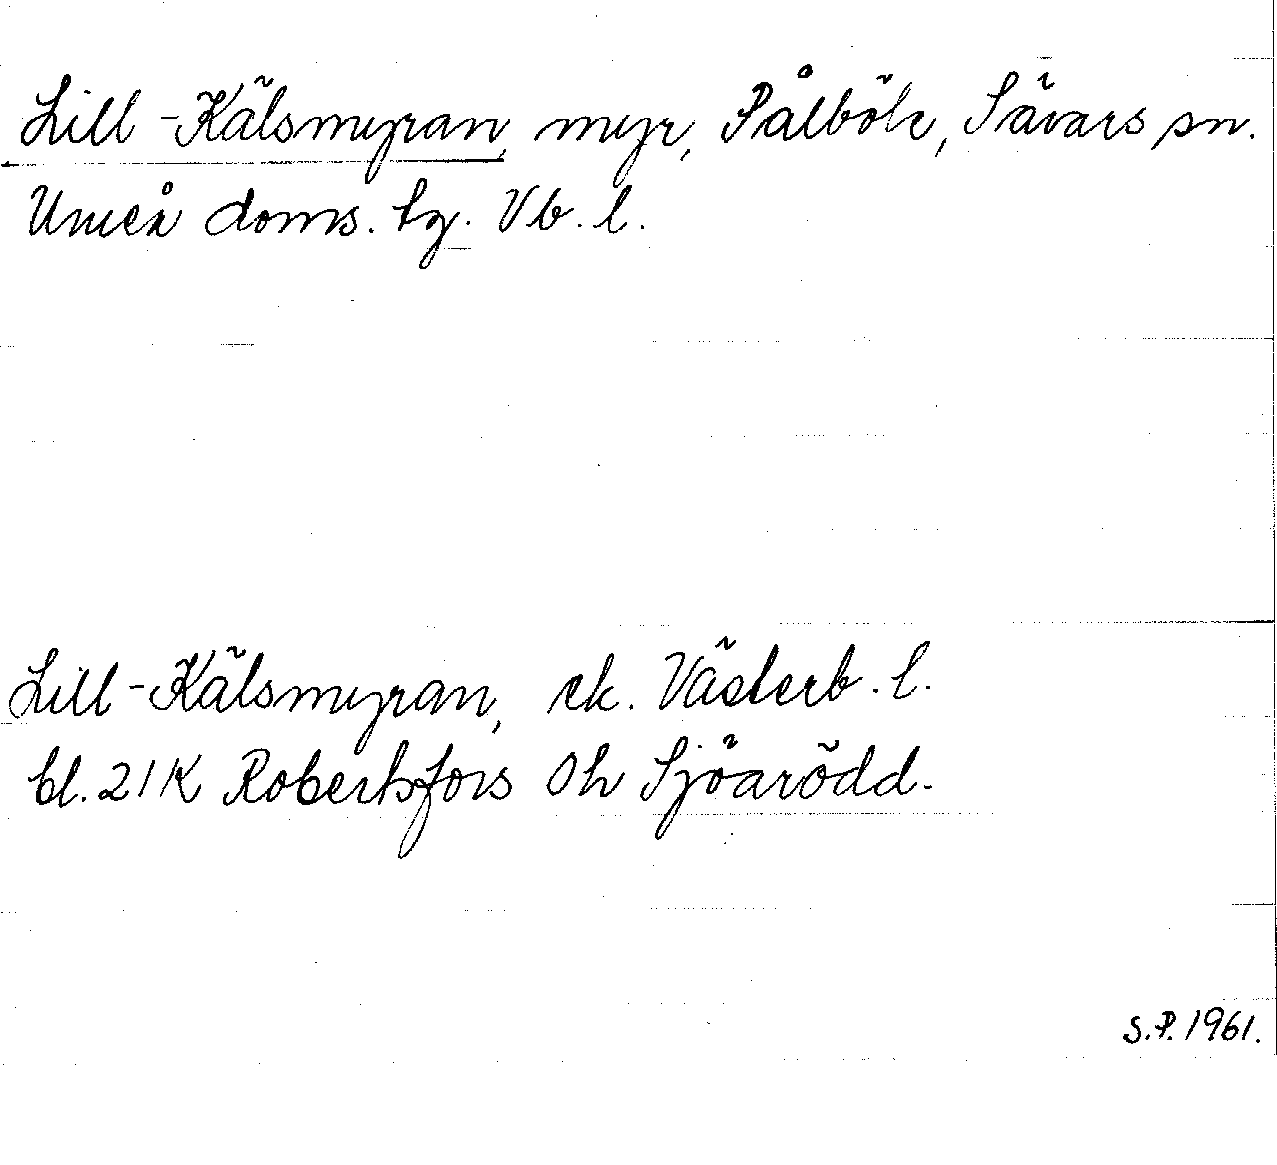 Lill-Kälsmyran, myr, Pålböle, Sävars sn.
Umeå doms. tg. Vb. l.
Lill-Kälsmyran, ek. Västerb. l.
bl. 21K Robertsfors Oh Sjöarödd.
S.P. 1961.